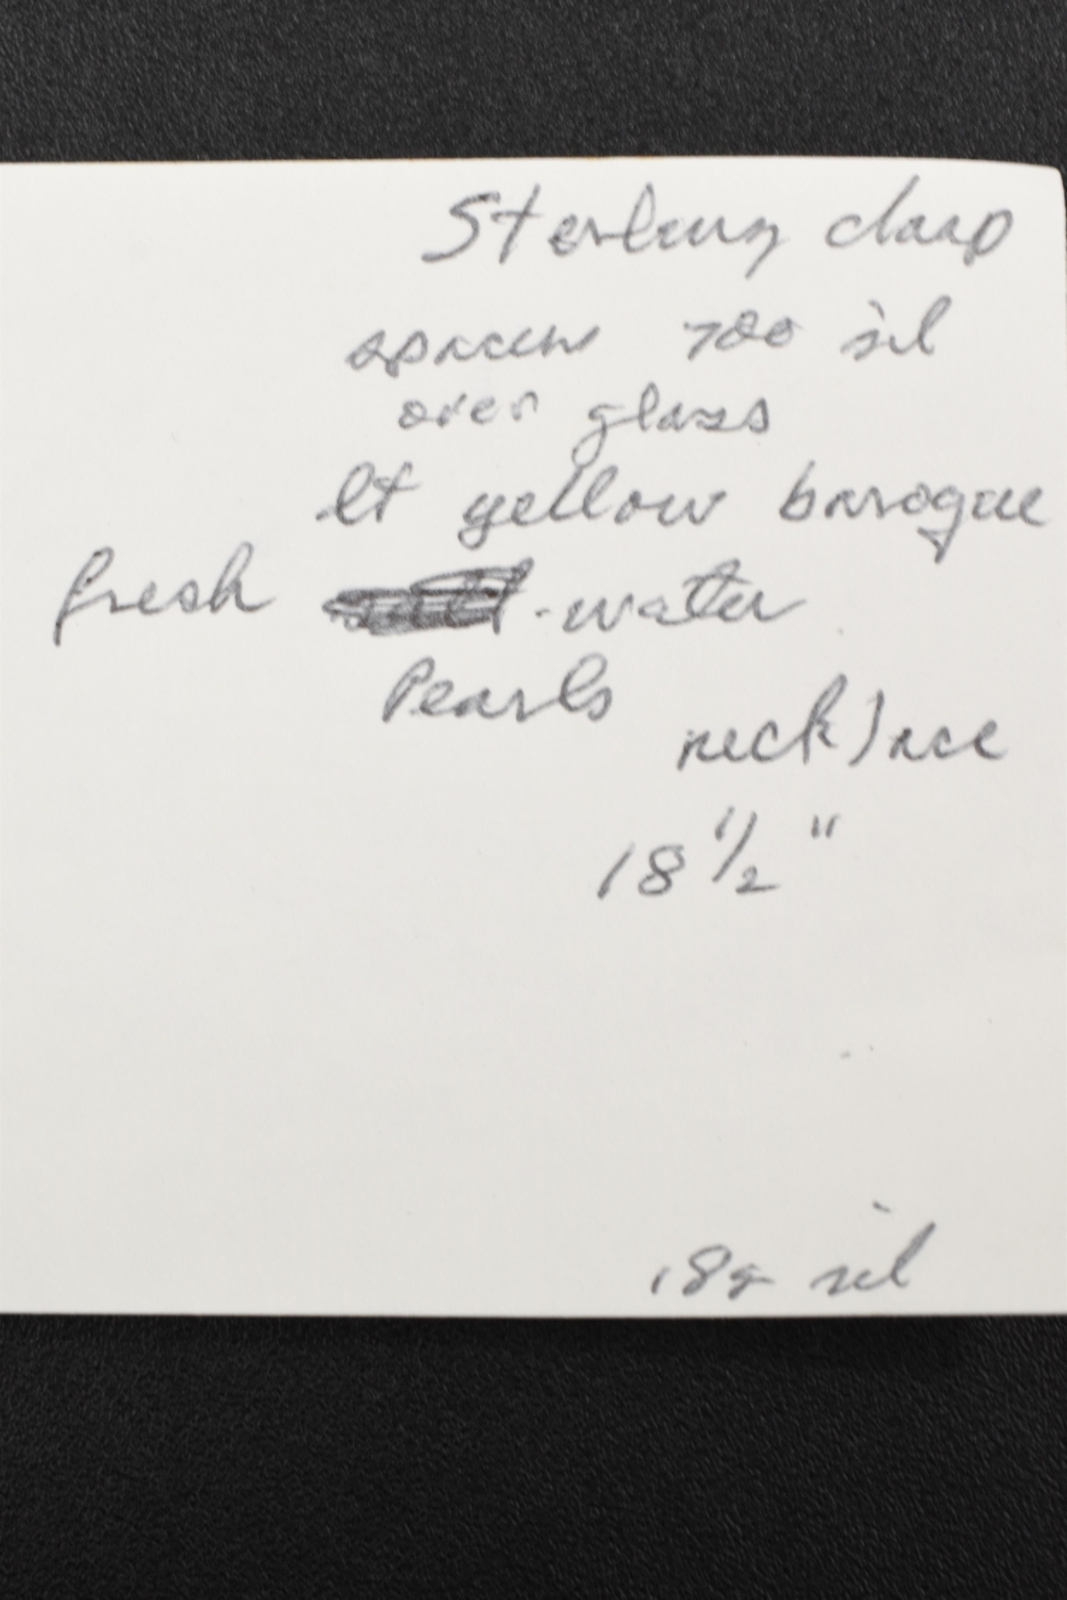 Sterling clasp
spacers 700 sil
over glass
lt yellow baroque
fresh -water
Pearls
necklace
18 1/2 "
.8g sil